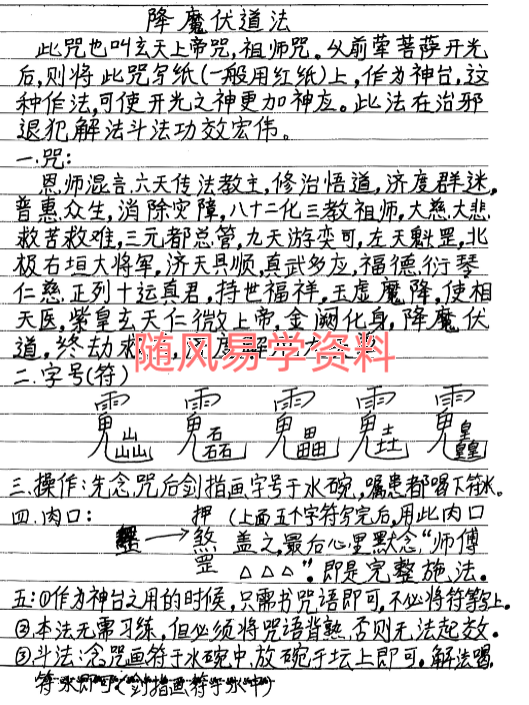 降魔伏道法
此咒也叫玄天上帝咒,祖师咒。父前辈菩萨开光
后,则将此咒写纸(一般用红纸)上,作为神台,这
种作法,可使开光之神更加神应。此法在治邪
退犯解法斗法功效宏伟。
一.咒:
恩师混言,六天传法教主,修治悟道,济度群迷,
普惠众生,消除灾障,八十二化三教祖师,大慈大悲.
救苦救难,三元都总管,九天游奕可,左天魁罡,北
极右垣大将军,济天具顺,真武多应,福德衍琴
仁慈.正列十运真君,持世福祥,玉虚魔降,使相
天医,紫皇玄天仁微上帝,金阙化身,降魔伏
道,终劫
随风易学资料
二.字号(符)
三.操作:先念咒后剑指画字号于水碗,嘱患者喝下符水。
四.内口: 押 (上面五个字符写完后,用此内口
→煞 盖之,最后心里默念,“师傅
罡 △△△”.即是完整施法。
五:①作为神台之用的时候,只需书咒语即可,不必将符等写上。
②本法无需习练,但必须将咒语背熟.否则无法起效。
③斗法:念咒画符于水碗中,放碗于坛上即可。解法喝.
符水即可(剑指画符于水中)